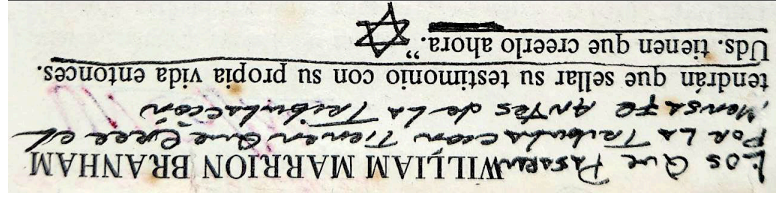 Los Que Pasaren WILLIAM MARRION BRANHAM
Por La Tribulación Tienen Que Creer el
Mensaje Antes de La Tribulación
tendrán que sellar su testimonio con su propia vida entonces.
Uds. tienen que creerlo ahora.”